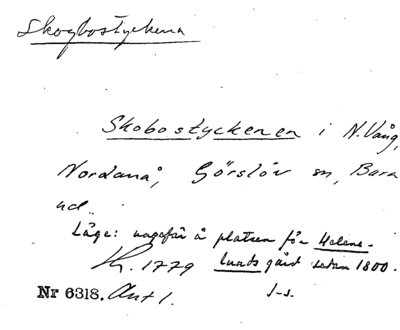 Skogbostyckena
Skobostyckenen i N. Vång,
Nordanå, Görslöv sn, Bara
hd.
Läge: ungefär å platsen för Helene-
Kr. 1779 lunds gård sedan 1800.
Nr 6318. Ant 1. J-s.